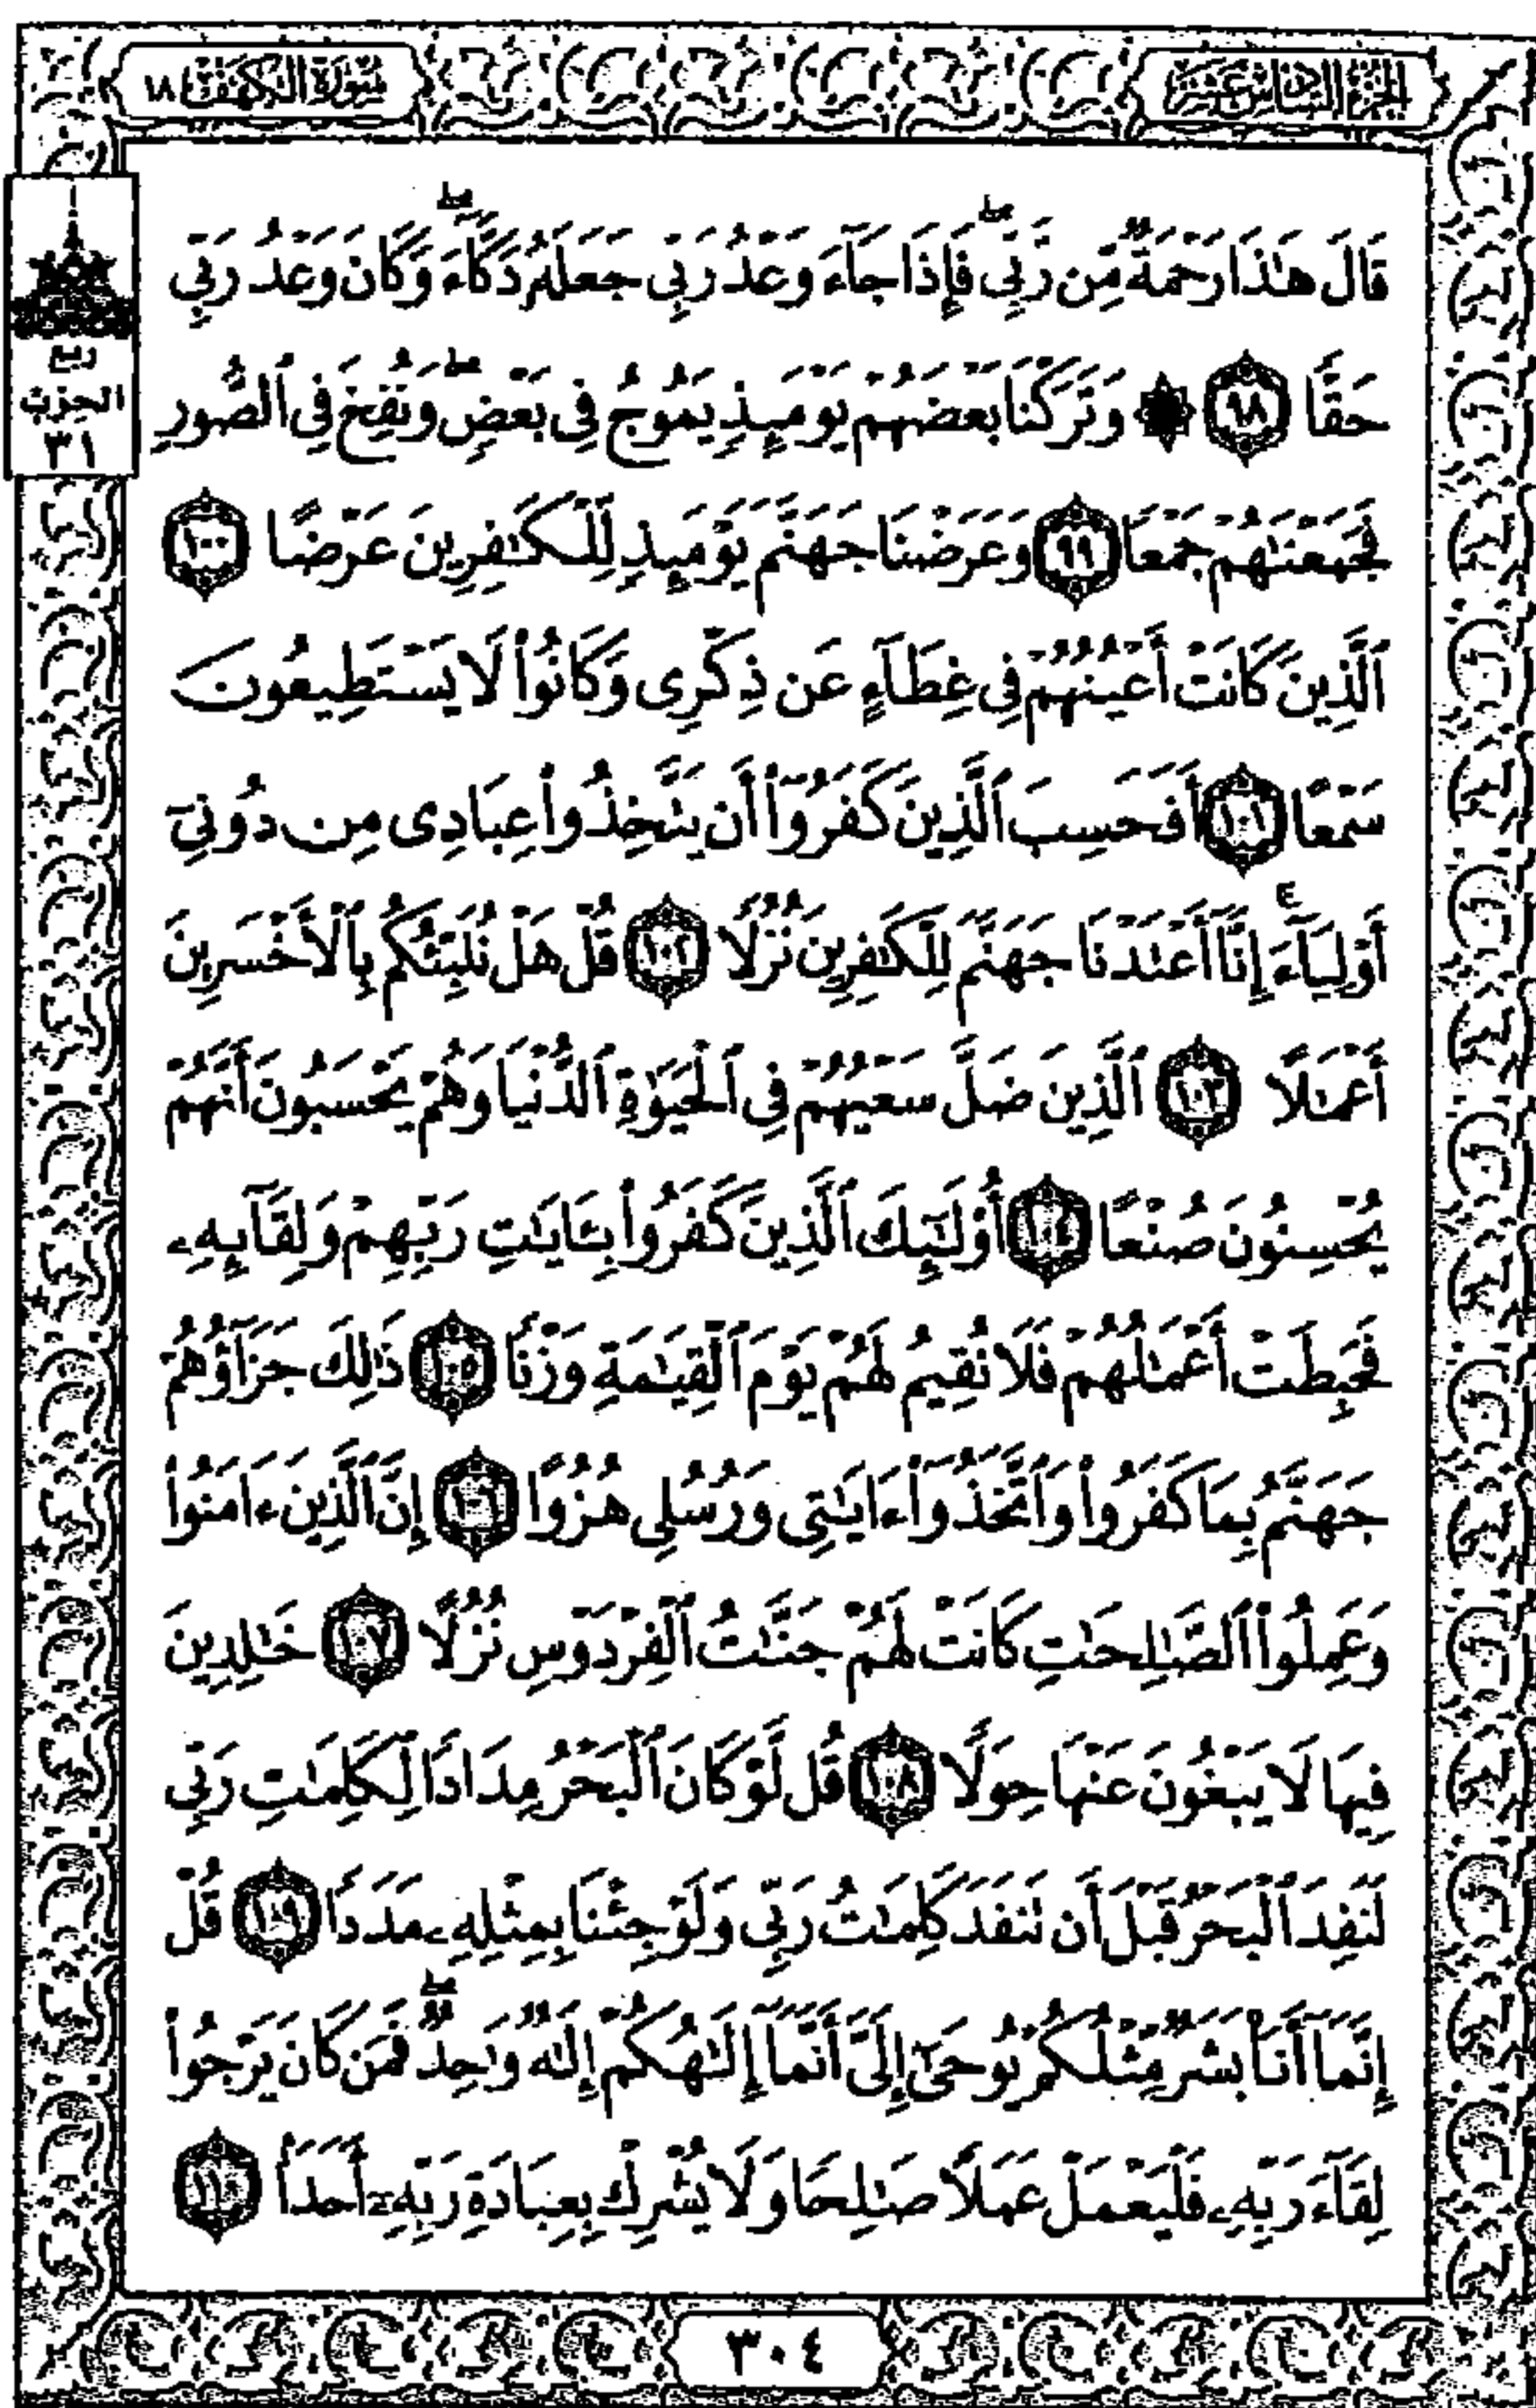 الجزء السادس عشر
سورة الكهف ١٨
ربع
الحزب
٣١
قَالَ هَٰذَا رَحْمَةٌ مِّن رَّبِّي ۖ فَإِذَا جَآءَ وَعْدُ رَبِّي جَعَلَهُۥ دَكَّآءَ ۖ وَكَانَ وَعْدُ رَبِّي
حَقًّا ٩٨ ۞ وَتَرَكْنَا بَعْضَهُمْ يَوْمَئِذٍ يَمُوجُ فِى بَعْضٍ ۖ وَنُفِخَ فِى ٱلصُّورِ
فَجَمَعْنَٰهُمْ جَمْعًا ٩٩ وَعَرَضْنَا جَهَنَّمَ يَوْمَئِذٍ لِّلْكَٰفِرِينَ عَرْضًا ١٠٠
ٱلَّذِينَ كَانَتْ أَعْيُنُهُمْ فِى غِطَآءٍ عَن ذِكْرِى وَكَانُوا۟ لَا يَسْتَطِيعُونَ
سَمْعًا ١٠١ أَفَحَسِبَ ٱلَّذِينَ كَفَرُوٓا۟ أَن يَتَّخِذُوا۟ عِبَادِى مِن دُونِىٓ
أَوْلِيَآءَ ۚ إِنَّآ أَعْتَدْنَا جَهَنَّمَ لِلْكَٰفِرِينَ نُزُلًا ١٠٢ قُلْ هَلْ نُنَبِّئُكُم بِٱلْأَخْسَرِينَ
أَعْمَٰلًا ١٠٣ ٱلَّذِينَ ضَلَّ سَعْيُهُمْ فِى ٱلْحَيَوٰةِ ٱلدُّنْيَا وَهُمْ يَحْسَبُونَ أَنَّهُمْ
يُحْسِنُونَ صُنْعًا ١٠٤ أُو۟لَٰٓئِكَ ٱلَّذِينَ كَفَرُوا۟ بِـَٔايَٰتِ رَبِّهِمْ وَلِقَآئِهِۦ
فَحَبِطَتْ أَعْمَٰلُهُمْ فَلَا نُقِيمُ لَهُمْ يَوْمَ ٱلْقِيَٰمَةِ وَزْنًا ١٠٥ ذَٰلِكَ جَزَآؤُهُمْ
جَهَنَّمُ بِمَا كَفَرُوا۟ وَٱتَّخَذُوٓا۟ ءَايَٰتِى وَرُسُلِى هُزُوًا ١٠٦ إِنَّ ٱلَّذِينَ ءَامَنُوا۟
وَعَمِلُوا۟ ٱلصَّٰلِحَٰتِ كَانَتْ لَهُمْ جَنَّٰتُ ٱلْفِرْدَوْسِ نُزُلًا ١٠٧ خَٰلِدِينَ
فِيهَا لَا يَبْغُونَ عَنْهَا حِوَلًا ١٠٨ قُل لَّوْ كَانَ ٱلْبَحْرُ مِدَادًا لِّكَلِمَٰتِ رَبِّى
لَنَفِدَ ٱلْبَحْرُ قَبْلَ أَن تَنفَدَ كَلِمَٰتُ رَبِّى وَلَوْ جِئْنَا بِمِثْلِهِۦ مَدَدًا ١٠٩ قُلْ
إِنَّمَآ أَنَا۠ بَشَرٌ مِّثْلُكُمْ يُوحَىٰٓ إِلَىَّ أَنَّمَآ إِلَٰهُكُمْ إِلَٰهٌ وَٰحِدٌ ۖ فَمَن كَانَ يَرْجُوا۟
لِقَآءَ رَبِّهِۦ فَلْيَعْمَلْ عَمَلًا صَٰلِحًا وَلَا يُشْرِكْ بِعِبَادَةِ رَبِّهِۦٓ أَحَدًۢا ١١٠
٣٠٤